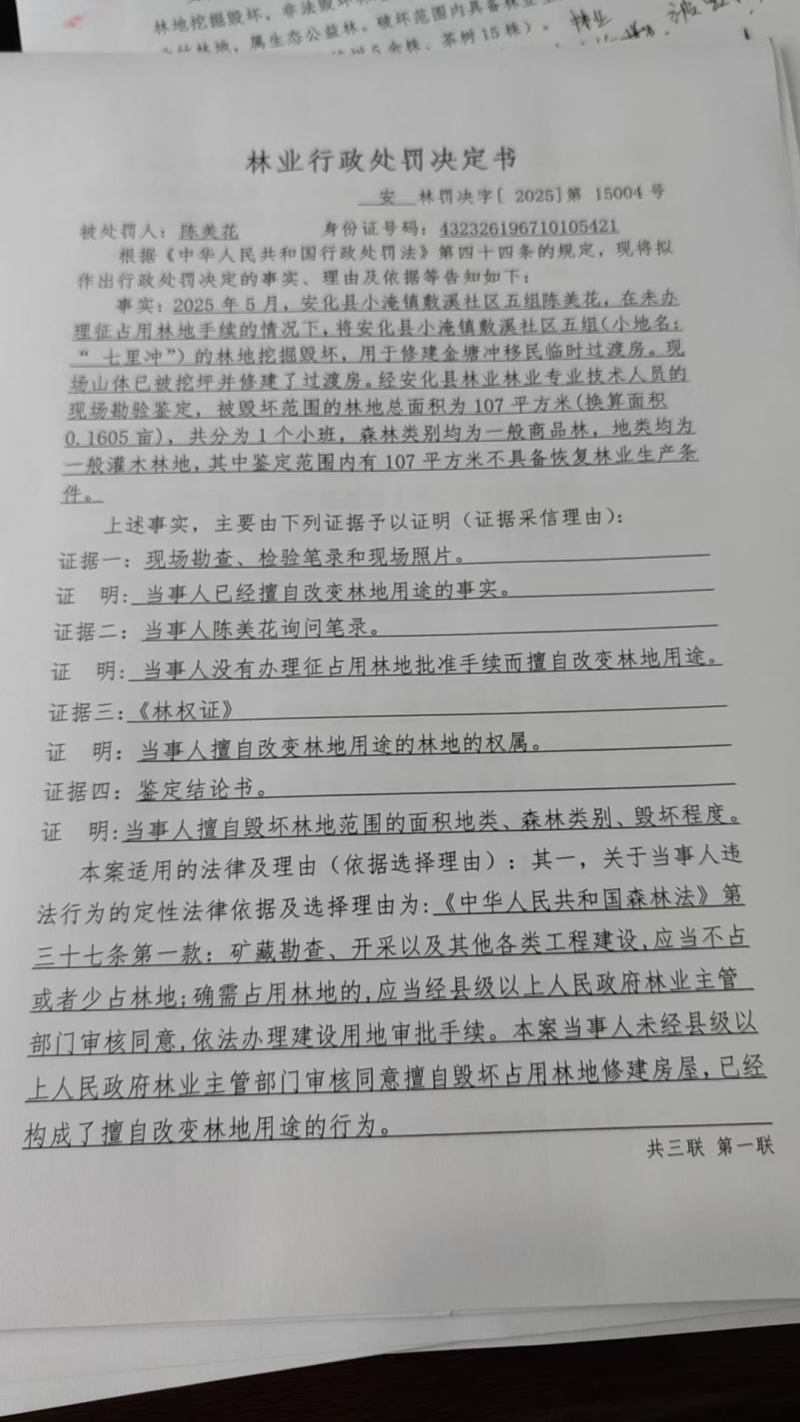 林地挖掘毁坏，非法毁坏林
林地，属生态公益林。破坏范围内具备林业
5余株、茶树15株）。
林业
林业行政处罚决定书
安 林罚决字[ 2025]第 15004 号
被处罚人：陈美花 身份证号码：432326196710105421
根据《中华人民共和国行政处罚法》第四十四条的规定，现将拟
作出行政处罚决定的事实、理由及依据等告知如下：
事实：2025 年 5 月，安化县小淹镇敷溪社区五组陈美花，在未办
理征占用林地手续的情况下，将安化县小淹镇敷溪社区五组(小地名：
“ 七里冲”）的林地挖掘毁坏，用于修建金塘冲移民临时过渡房。现
场山体已被挖坪并修建了过渡房。经安化县林业林业专业技术人员的
现场勘验鉴定，被毁坏范围的林地总面积为 107 平方米(换算面积
0.1605 亩)，共分为 1 个小班，森林类别均为一般商品林，地类均为
一般灌木林地，其中鉴定范围内有 107 平方米不具备恢复林业生产条
件。
上述事实，主要由下列证据予以证明（证据采信理由）：
证据一：现场勘查、检验笔录和现场照片。
证 明：当事人已经擅自改变林地用途的事实。
证据二：当事人陈美花询问笔录。
证 明：当事人没有办理征占用林地批准手续而擅自改变林地用途。
证据三：《林权证》
证 明：当事人擅自改变林地用途的林地的权属。
证据四：鉴定结论书。
证 明：当事人擅自毁坏林地范围的面积地类、森林类别、毁坏程度。
本案适用的法律及理由（依据选择理由）：其一，关于当事人违
法行为的定性法律依据及选择理由为：《中华人民共和国森林法》第
三十七条第一款：矿藏勘查、开采以及其他各类工程建设，应当不占
或者少占林地；确需占用林地的，应当经县级以上人民政府林业主管
部门审核同意，依法办理建设用地审批手续。本案当事人未经县级以
上人民政府林业主管部门审核同意擅自毁坏占用林地修建房屋，已经
构成了擅自改变林地用途的行为。
共三联 第一联